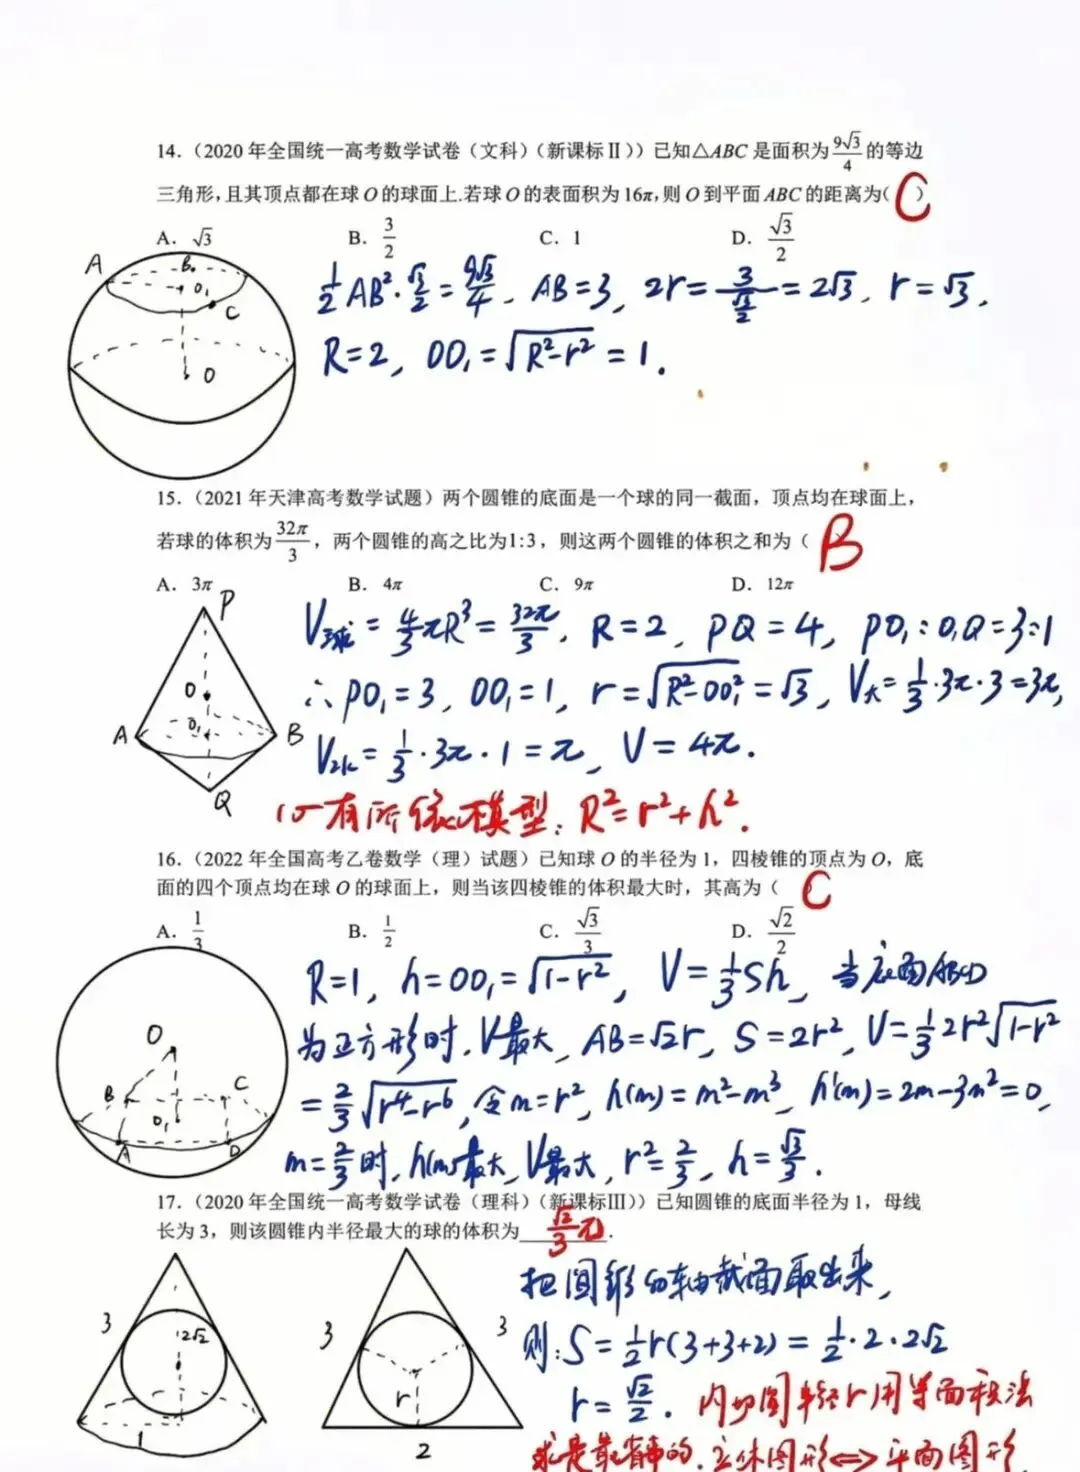 14.（2020 年全国统一高考数学试卷（文科）（新课标Ⅱ））已知△ABC 是面积为 9√3/4 的等边
三角形，且其顶点都在球 O 的球面上.若球 O 的表面积为 16π,则 O 到平面 ABC 的距离为( C )
A. √3 B. 3/2 C. 1 D. √3/2
A B O₁ C O
1/2 AB²·√3/2 = 9√3/4, AB=3, 2r= 3/(√3/2) =2√3, r=√3,
R=2, OO₁=√(R²-r²) =1.
15.（2021 年天津高考数学试题）两个圆锥的底面是一个球的同一截面，顶点均在球面上，
若球的体积为 32π/3，两个圆锥的高之比为1:3，则这两个圆锥的体积之和为（ B
A. 3π B. 4π C. 9π D. 12π
P O O₁ A B Q
V球 = 4/3 πR³ = 32π/3, R=2, PQ=4, PO₁:O₁Q=3:1
∴PO₁=3, OO₁=1, r=√(R²-OO₁²)=√3, V大=1/3·3π·3=3π,
V小=1/3·3π·1=π, V=4π.
模型: R²=r²+h².
16.（2022 年全国高考乙卷数学（理）试题）已知球 O 的半径为 1，四棱锥的顶点为 O，底
面的四个顶点均在球 O 的球面上，则当该四棱锥的体积最大时，其高为（ C
A. 1/3 B. 1/2 C. √3/3 D. √2/2
O B C O₁ A D
R=1, h=OO₁=√(1-r²), V=1/3 Sh, 当底面ABCD
为正方形时,V最大, AB=√2r, S=2r², V=1/3 2r²√(1-r²)
=2/3√(r⁴-r⁶),令m=r², h(m)=m²-m³, h'(m)=2m-3m²=0,
m=2/3时,h(m)最大,V最大, r²=2/3, h=√3/3.
17.（2020 年全国统一高考数学试卷（理科）（新课标Ⅲ））已知圆锥的底面半径为 1，母线
长为 3，则该圆锥内半径最大的球的体积为 √2/3 π.
3 2√2 1
3 3 r 2
把圆锥的轴截面取出来,
则:S=1/2 r(3+3+2)=1/2·2·2√2
r=√2/2. 内切圆半径r用等面积法
求是最有效的.立体图形⟺平面图形.